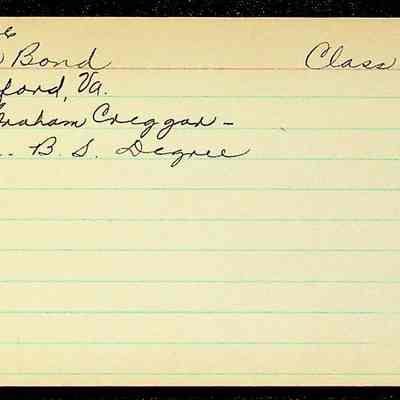 Bond Class
ford, Va.
raham Creggar -
B. S. Degree